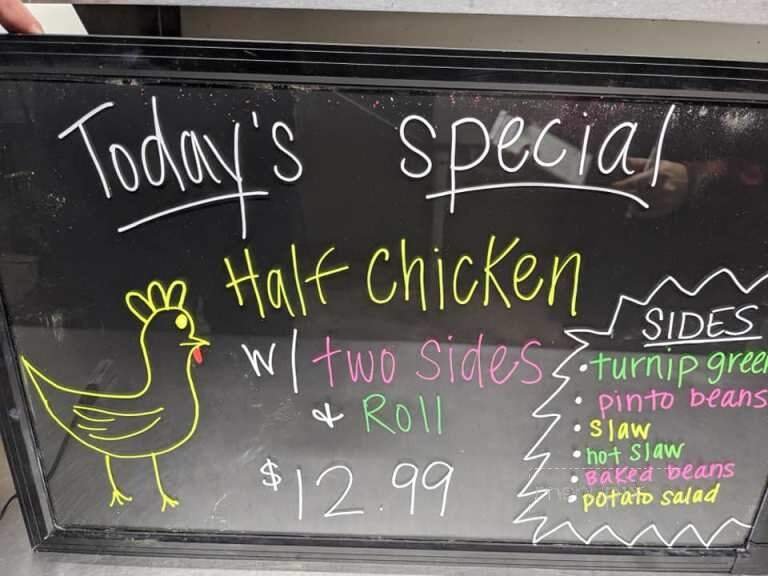 Today's special
Half Chicken
w/ two sides
& Roll
$12.99
SIDES
• turnip gree
• pinto beans
• slaw
• hot slaw
• Baked beans
• potato salad